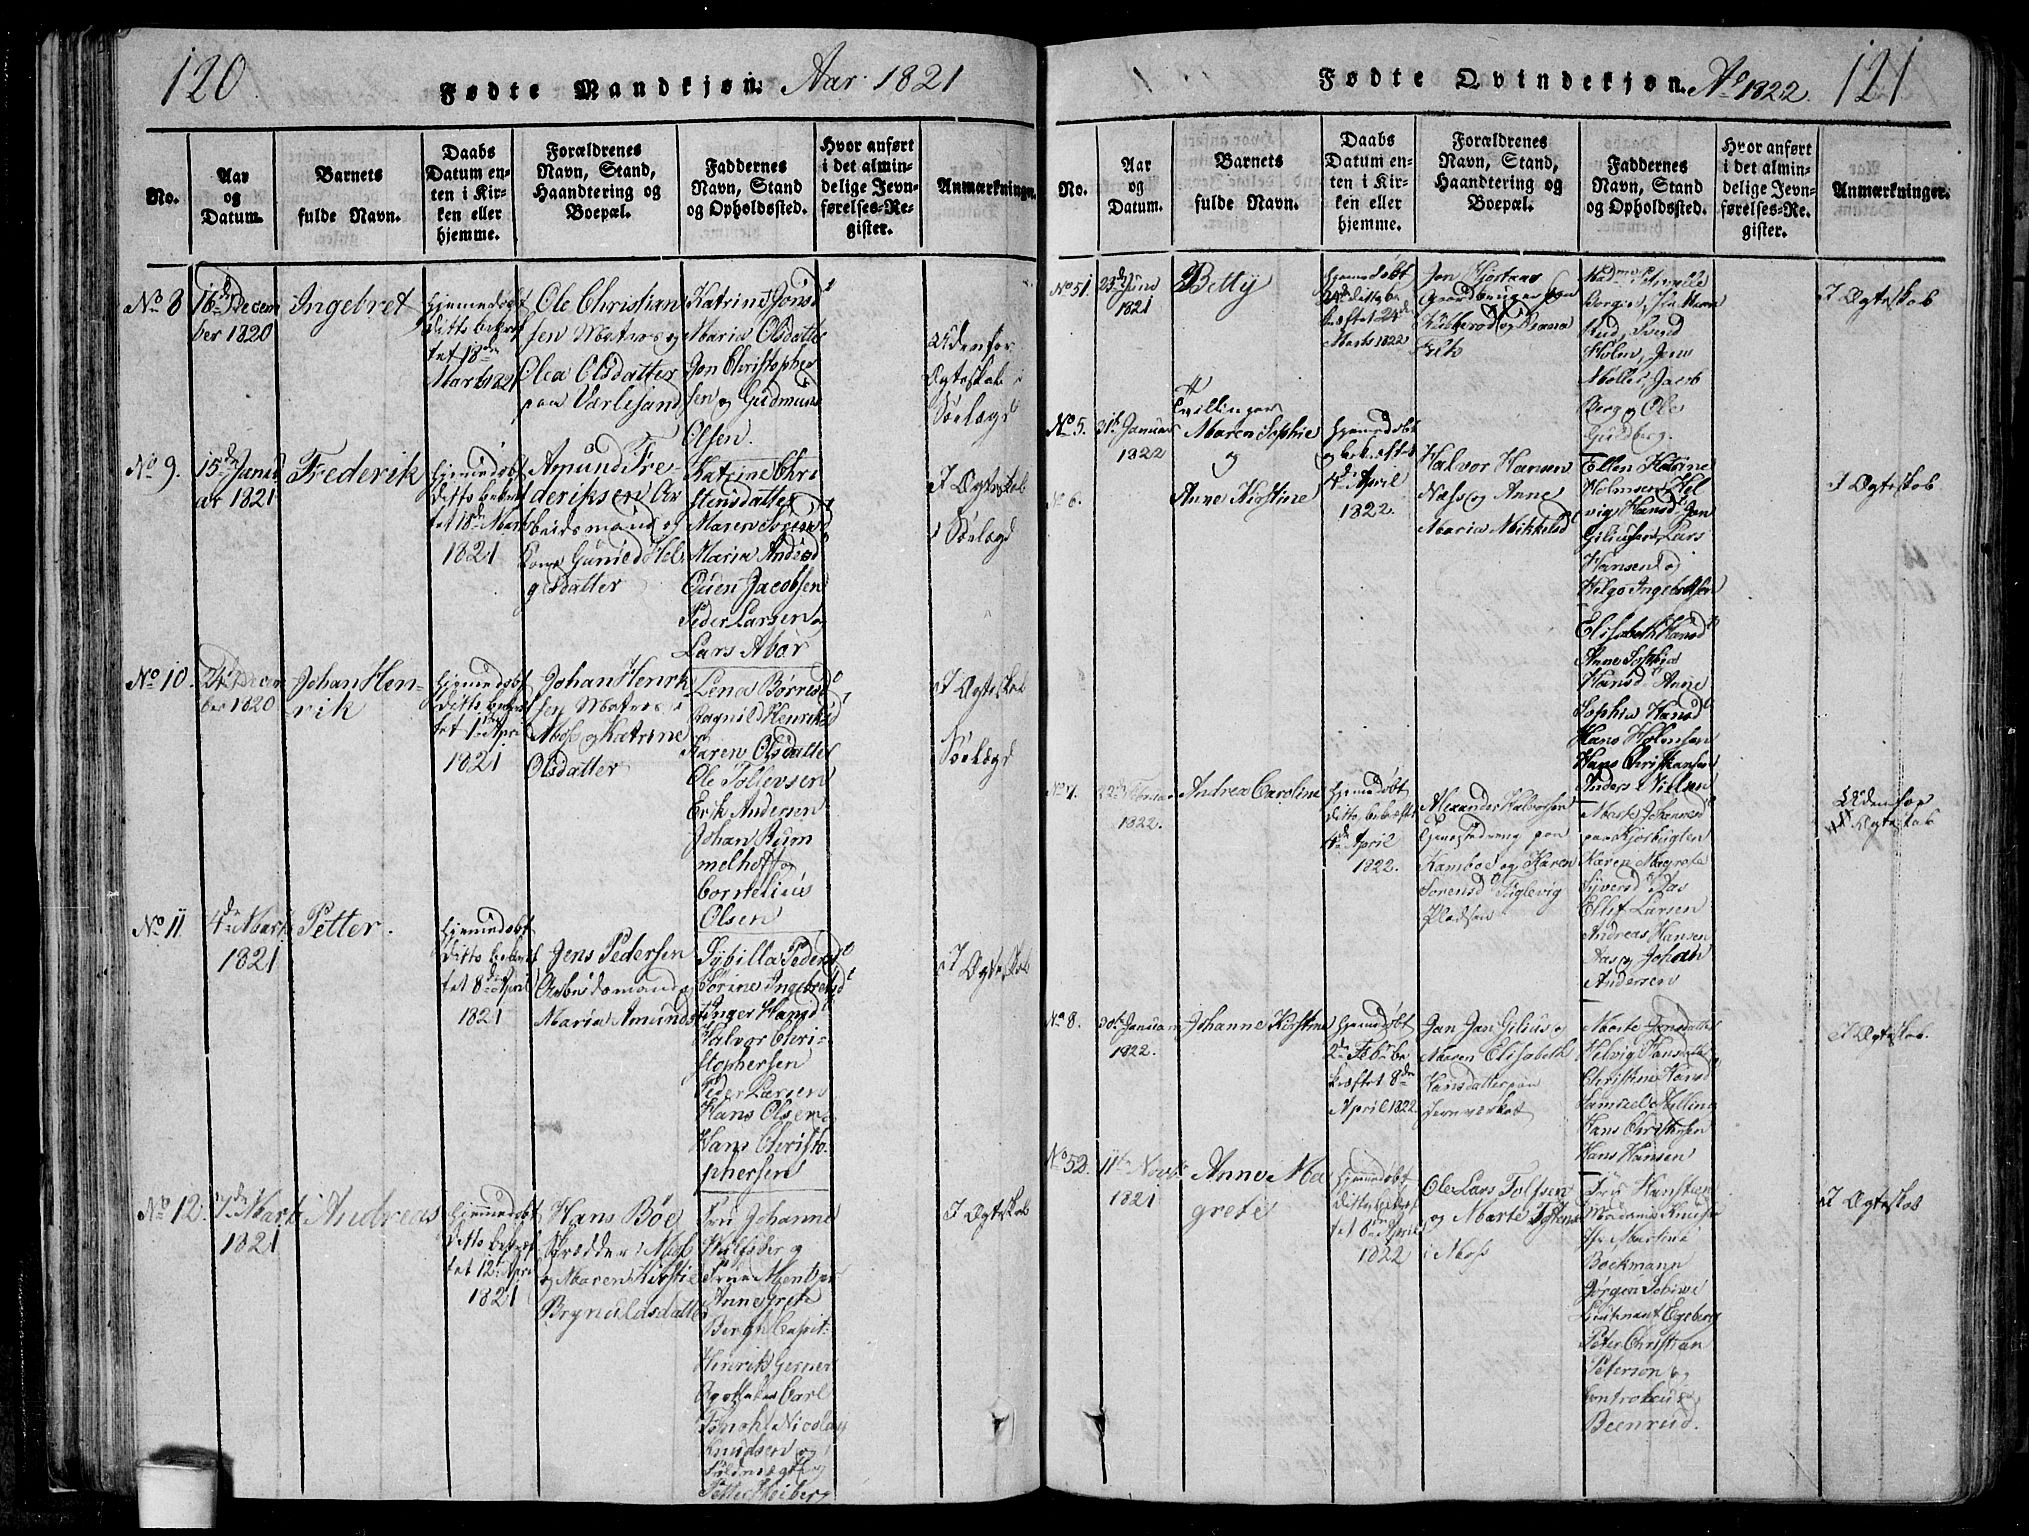 120
Fødte Mandkjøn. Aar 1821
No.
Aar
og
Datum.
Barnets
fulde Navn.
Daabs
Datum en-
ten i Kir-
ken eller
hjemme.
Forældrenes
Navn, Stand,
Haandtering og
Boepæl.
Faddernes
Navn, Stand
og Opholdssted.
Hvor anført
i det almin-
delige Jevn-
førelses-Re-
gister.
Anmærkninger
No 8
16de Decem
ber 1820
Ingebret
Hjemmedøbt
ditto bekræf
tet 18de
Marts 1821
Ole Christian
sen Matros og
Olea Olsdatter
paa Værlesand
Katrine Jonsd
Maria Olsdatter
Jon Christopher
sen og Gudmund
Olsen.
Udenfor
Ægteskab
Søelægd
No 9.
15de Janu
ar 1821
Frederik
Hjemmedøbt
ditto bekræf
tet 18de Marts
1821
Amund Fre-
deriksen Ar
beidsmand og
Kone Gunild Hel
gesdatter
Katrine Chri
stensdatter
Maren Sørensd
Maria Andersd
Ouen Jacobsen
Peder Larsen og
Lars Abør
I Ægteskab
i Søelægd
No 10
24de Decem
ber 1820
Johan Hen-
rik
Hjemmedøbt
ditto bekræf
tet 1de April
1821
Johan Henrik
sen Matros i
Moss og Katrine
Olsdatter
Lena Børresd
Ragnild Henriksd
Karen Olsdatter
Ole Tollevsen
Erik Andersen
Johan Rum
melhoff og
Cornelius
Olsen
I Ægteskab
Søelægd
No 11
4de Marts
1821
Petter.
Hjemmedøbt
ditto bekræf
tet 8de April
1821
Jens Pedersen
Arbeidsmand og
Maria Amunds
Sybilla Pedersd
Sørine Ingebretsd
Inger Hansd
Halvor Chri-
stophersen
Peder Larsen
Hans Olsen og
Hans Christo-
phersen
I Ægteskab
No 12.
7de Marts
1821
Andreas
Hjemmedøbt
ditto bekræf
tet 12de April
1821
Hans Bøe
Skrædder i Moss
og Maren Kirstie
Brynildsdatter
Fru Johanne
Wulfsberg
Anne Grete
Bergh Capit
Henrik Gerner
Apotheker Carl
Nicolay
Knudsen og
Petter Heiberg
I Ægteskab
Fødte Qvindekjøn. Ao 1822.
121
No.
Aar
og
Datum.
Barnets
fulde Navn.
Daabs
Datum en-
ten i Kir-
ken eller
hjemme.
Forældrenes
Navn, Stand,
Haandtering og
Boepæl.
Faddernes
Navn, Stand
og Opholdssted.
Hvor anført
i det almin-
delige Jevn-
førelses-Re-
gister.
Anmærkninger.
No 51
23de Juni
1821
Betty
Hjemmedøbt
ditto be
kræftet 24de
Marts 1822
Jon Hjortaas
Gaardbruger paa
Madme Petronelle
Svend
Holm, Jens
Møller, Jacob
Berg og Ole
Guldberg.
I Ægteskab
No 5.
31te Januar
1822
Tvillinger
Maren Sophie
og
No 6.
Anne Kirstine
Hjemmedøbt
og bekræftet
4de April
1822.
Halvor Hansen
Næss og Anne
Maria Mikkelsd
Ellen Katrine
Holmsen Hel
vig Hansd Jan
Giliussen Lars
Hansen og
Helge Ingebretsen
Elisabeth Hansd
Anne Sophia
Hansd Anne
Sophia Hansd
Hans Holmsen
Hans Christiansen
Anders Nielsen
I Ægteskab
No 7.
1822.
Andrea Caroline
Hjemmedøbt
ditto bekræftet
4de April
1822.
Alexander Halvorsen
paa
Kamboe og Karen
Sørensd Teglevig
Pladsen
Marte Johannesd
paa Kjorbugten
Karen Magrete
Syversd Aas
Ellef Larsen
Andreas Hansen
Aas og Johan
Andersen
Udenfor
Ægteskab
No 8.
30te Januar
1822.
Johanne Kirstine
Hjemmedøbt
2de Febr be
kræftet 8de
April 1822
Jan Jan Gilius og
Maren Elisabeth
Hansdatter paa
Jernværket
Marte Jonsdatter
Helvig Hansdatter
Christine Hansd
Samuel Melling
Hans Christiansen
Hans Hansen
I Ægteskab.
No 52.
11te Novbr
1821
Anne Ma
grete
Hjemmedøbt
ditto bekræf
tet 8de April
1822
Ole Lars Tolfsen
og Marte
i Moss
Fru Hansteen
Martine
Bockmann
Jørgen
Lieutenant Egeberg
Peter Christian
Peterson og
Controleur
Beenrud.
I Ægteskab